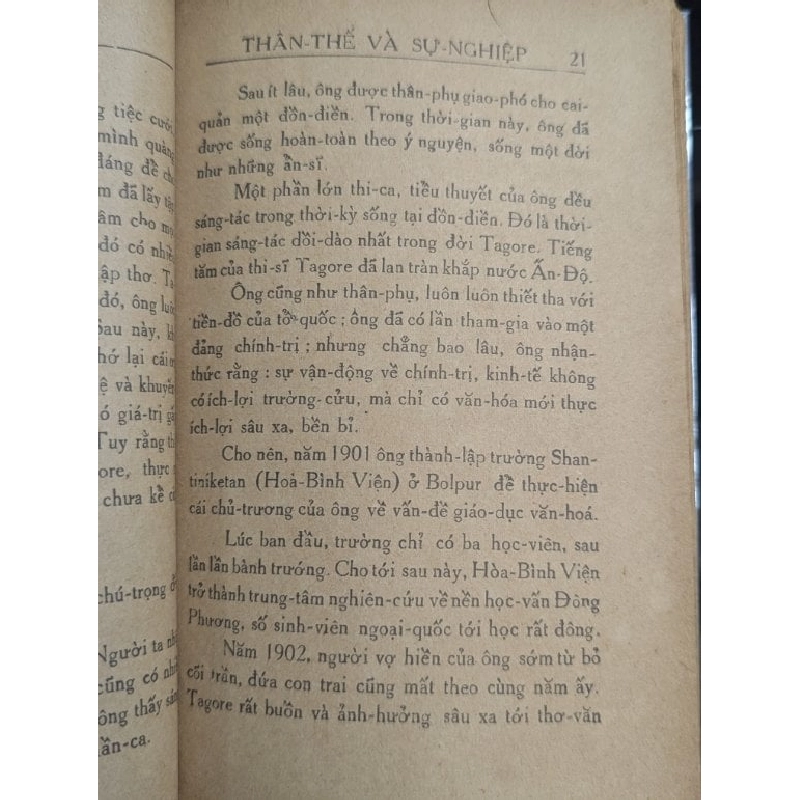 g tiệc cưới
mình quàng
đáng để ch
m đã lấy tập
âm cho mọi
đó có nhiề
ập thơ. Ta
đó, ông luô
Sau này, kh
hớ lại cái
ệ và khuyến
ó giá-trị gấ
Tuy rằng th
ore, thực
chưa kể c
chú-trọng ở
Người ta nh
cũng có nhi
ông thấy sán
ần-ca.
THÂN-THẾ VÀ SỰ-NGHIỆP 21
Sau ít lâu, ông được thân-phụ giao-phó cho cai-
quản một đồn-điền. Trong thời-gian này, ông đã
được sống hoàn-toàn theo ý nguyện, sống một đời
như những ẩn-sĩ.
Một phần lớn thi-ca, tiểu thuyết của ông đều
sáng-tác trong thời-kỳ sống tại đồn-điền. Đó là thời-
gian sáng-tác dồi-dào nhất trong đời Tagore. Tiếng
tăm của thi-sĩ Tagore đã lan tràn khắp nước Ấn-Độ.
Ông cũng như thân-phụ, luôn luôn thiết tha với
tiền-đồ của tổ-quốc ; ông đã có lần tham-gia vào một
đảng chính-trị ; nhưng chẳng bao lâu, ông nhận-
thức rằng : sự vận-động về chính-trị, kinh-tế không
có ích-lợi trường-cửu, mà chỉ có văn-hóa mới thực
ích-lợi sâu xa, bền bỉ.
Cho nên, năm 1901 ông thành-lập trường Shan-
tiniketan (Hoà-Bình Viện) ở Bolpur để thực-hiện
cái chủ-trương của ông về vấn-đề giáo-dục văn-hoá.
Lúc ban đầu, trường chỉ có ba học-viên, sau
lần lần bành trướng. Cho tới sau này, Hòa-Bình Viện
trở thành trung-tâm nghiên-cứu về nền học-vấn Đông
Phương, số sinh-viên ngoại-quốc tới học rất đông.
Năm 1902, người vợ hiền của ông sớm từ bỏ
cõi trần, đứa con trai cũng mất theo cùng năm ấy.
Tagore rất buồn và ảnh-hưởng sâu xa tới thơ-văn